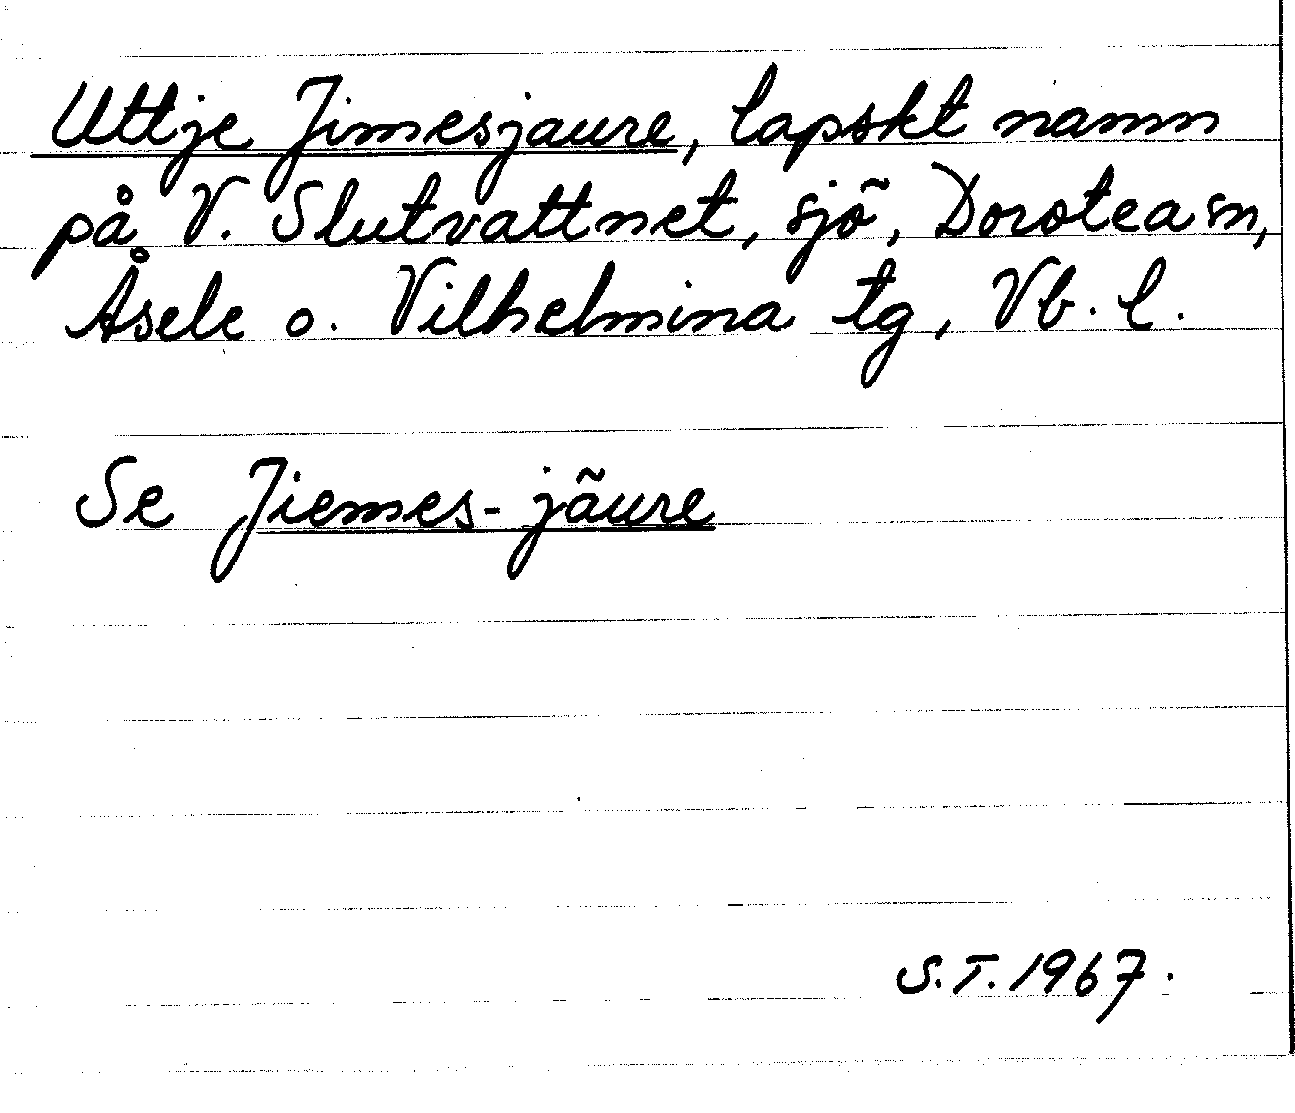 Uttje Jimesjaure, lapskt namn
på V. Slutvattnet, sjö, Dorotea sn,
Åsele o. Vilhelmina tg, Vb. l.
Se Jiemes-jäure
S.T. 1967.